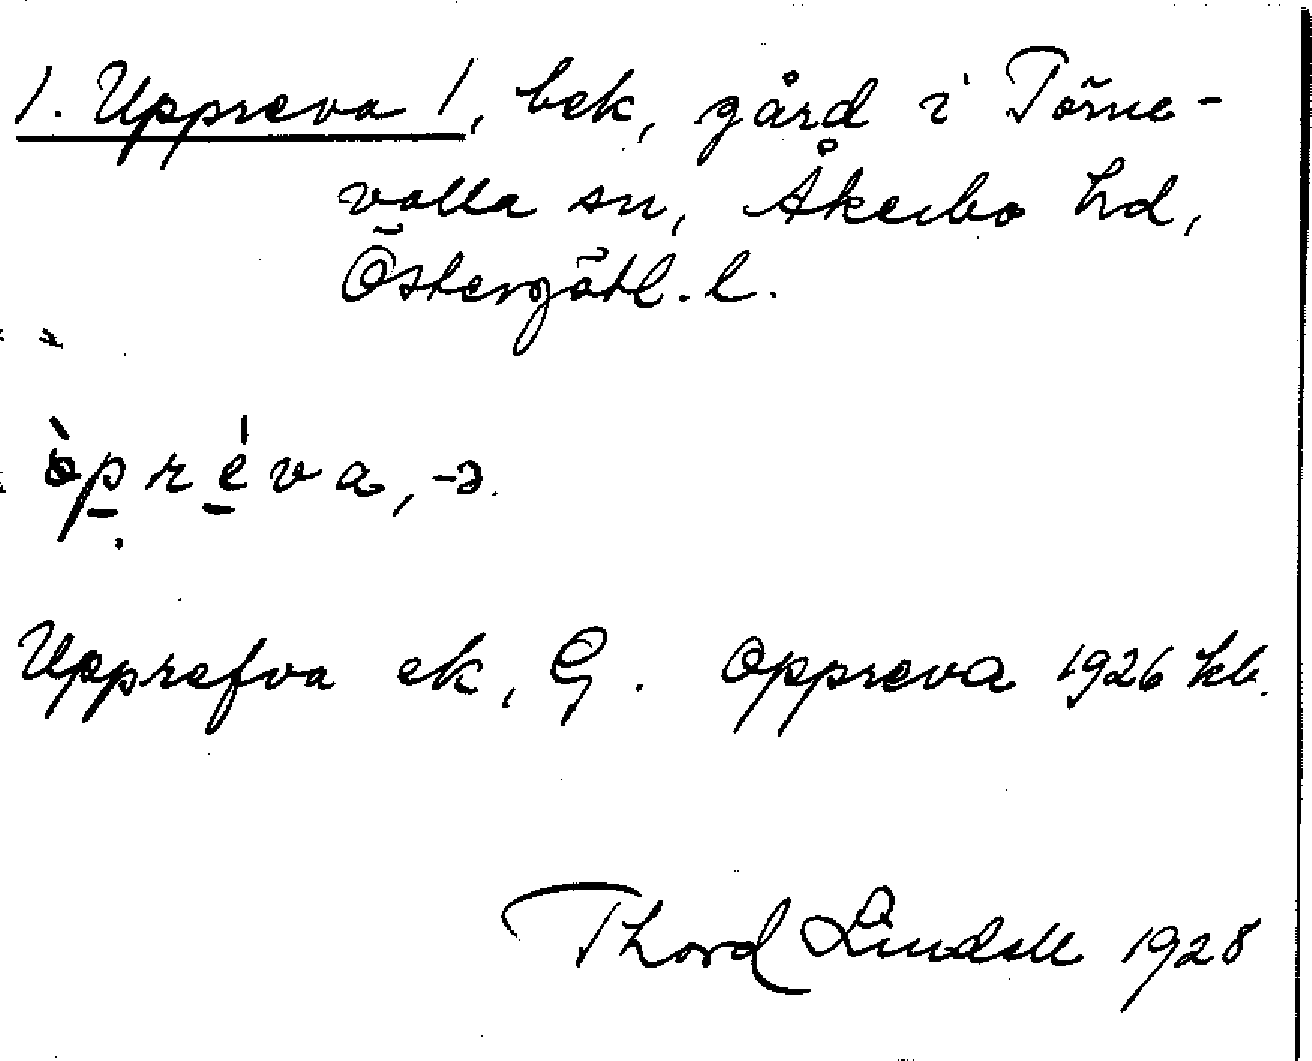 1. Uppreva 1, bek, gård i Törne-
valla sn, Åkerbo hd,
Östergötl. l.
òpréva, -ə.
Upprefva ek, G. Oppreva 1926 kb.
Thord Lindell 1928